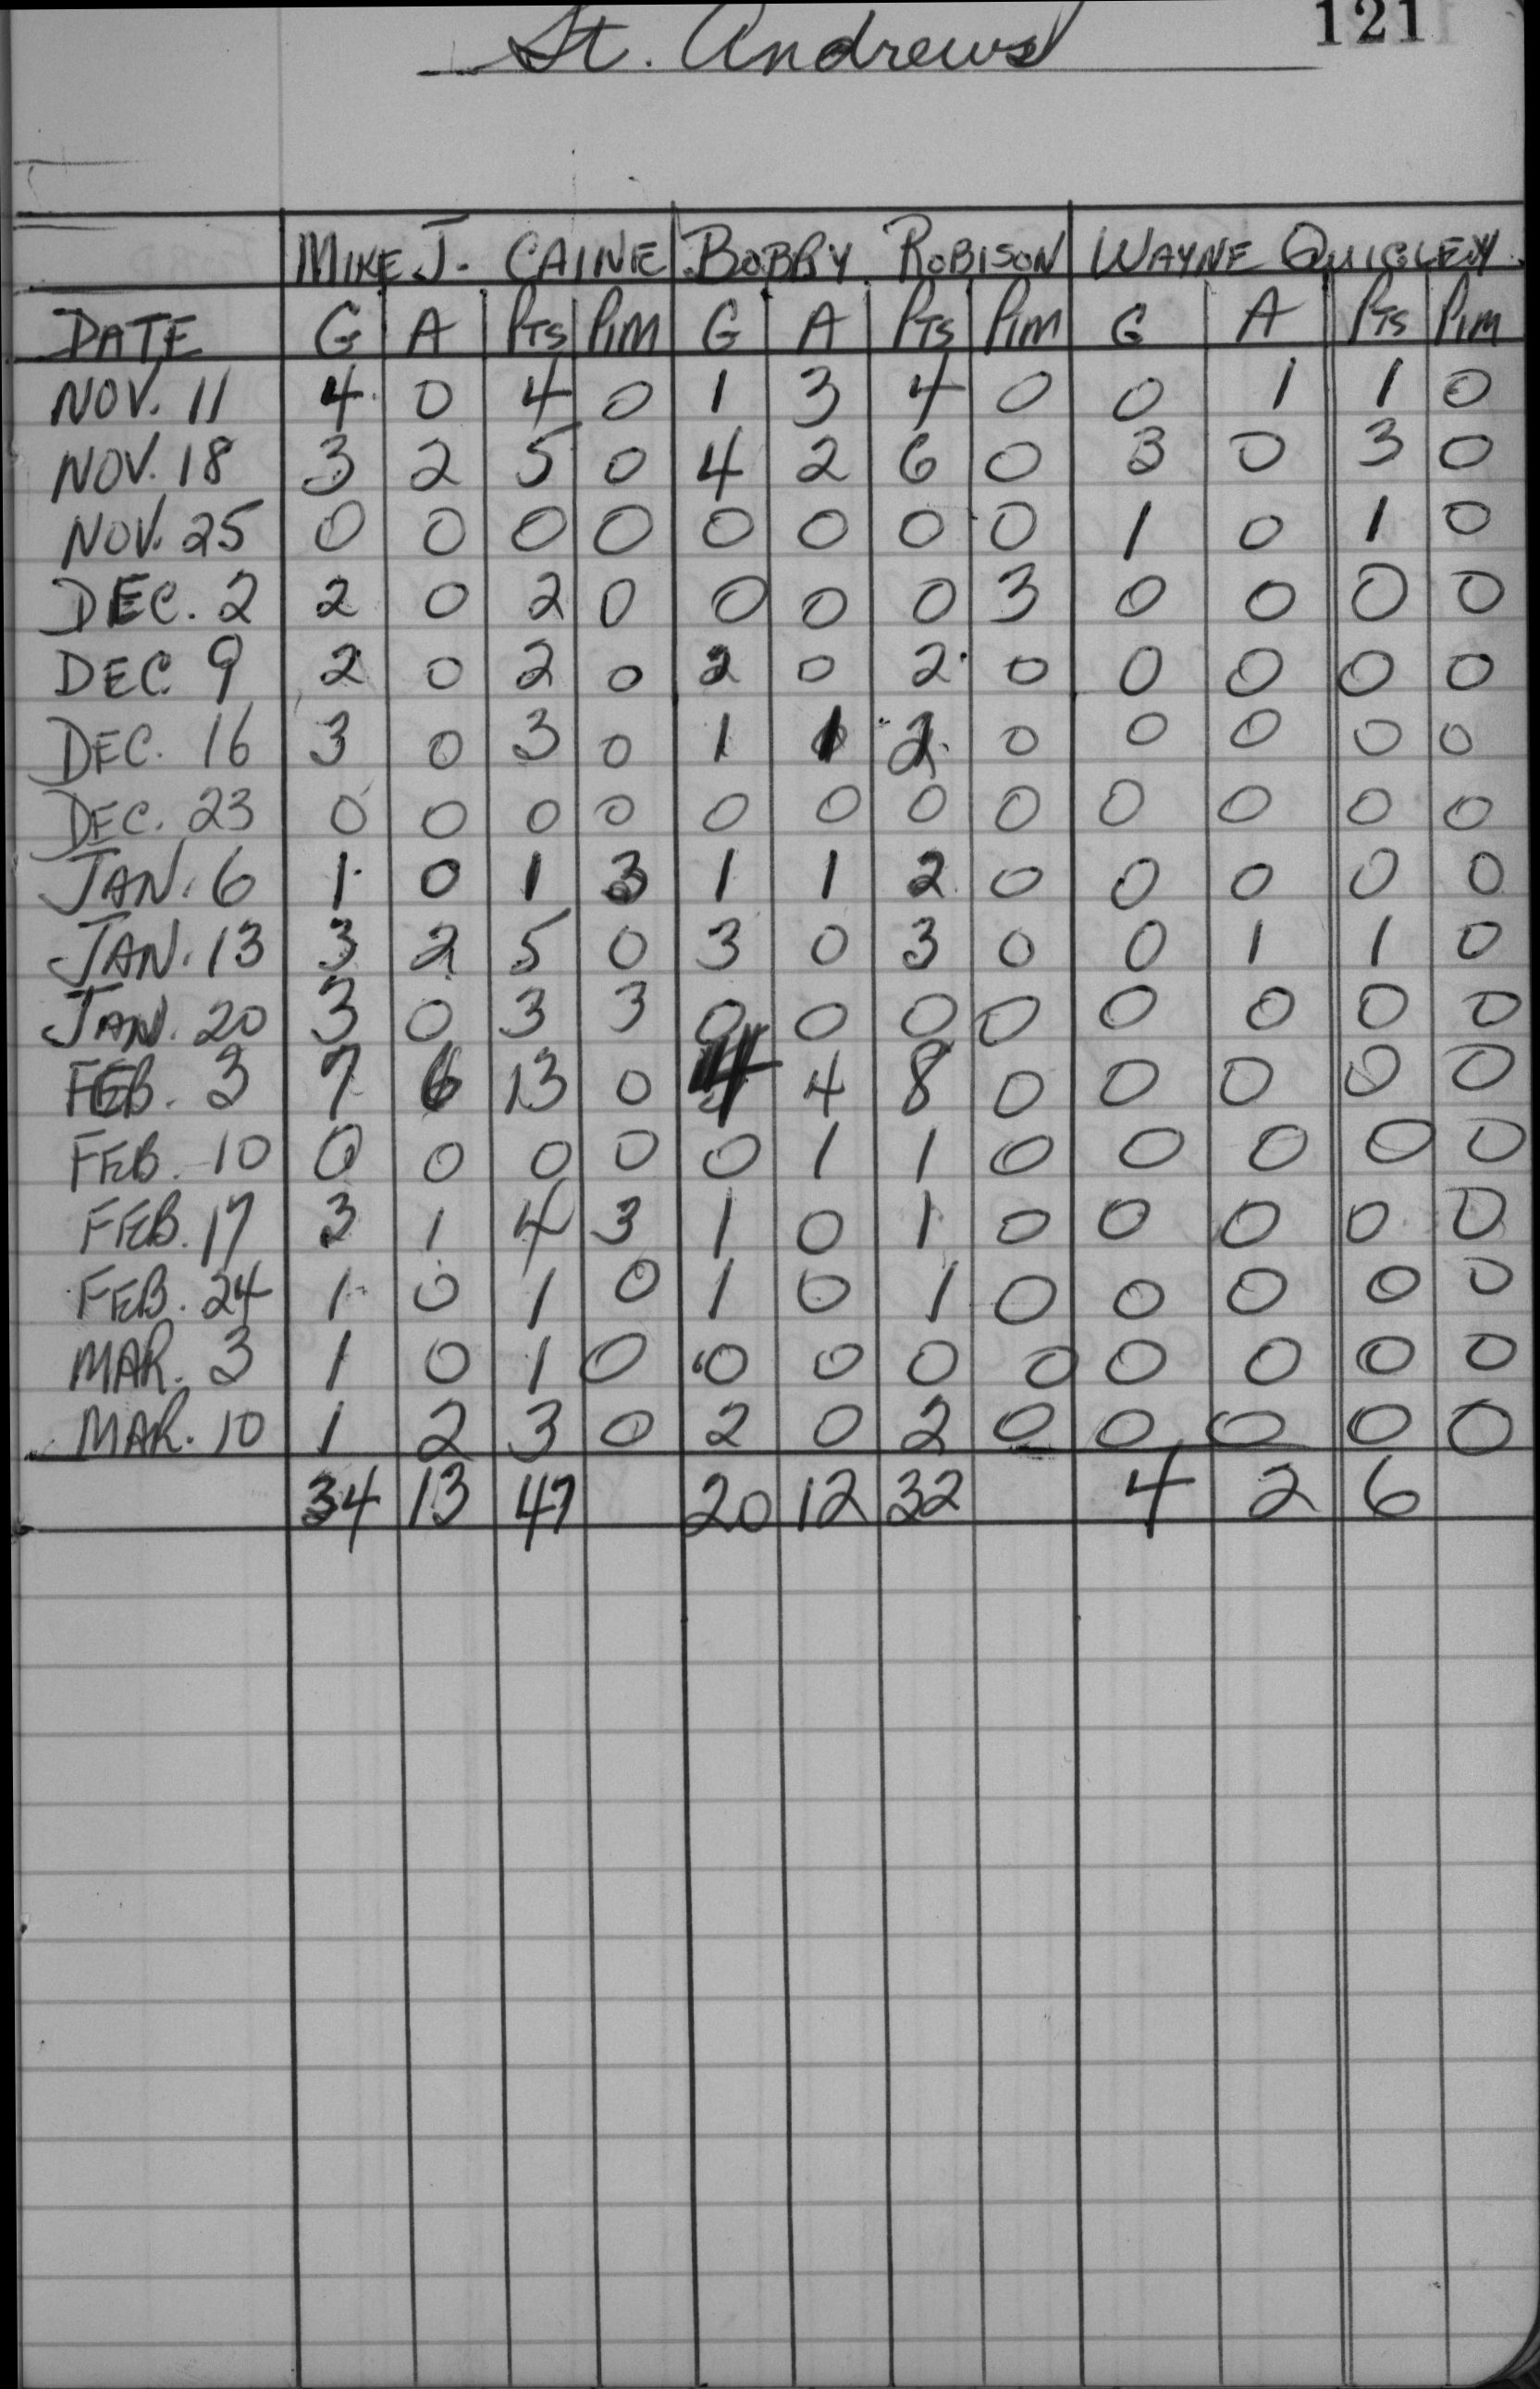 121
St. Andrews
MIKE J. CAINE BOBBY ROBISON WAYNE QUIGLEY
DATE G A PTS PIM G A PTS PIM G A PTS PIM
NOV. 11 4 0 4 0 1 3 4 0 0 1 1 0
NOV. 18 3 2 5 0 4 2 6 0 3 0 3 0
NOV. 25 0 0 0 0 0 0 0 0 1 0 1 0
DEC. 2 2 0 2 0 0 0 0 3 0 0 0 0
DEC. 9 2 0 2 0 2 0 2 0 0 0 0 0
DEC. 16 3 0 3 0 1 1 2 0 0 0 0 0
DEC. 23 0 0 0 0 0 0 0 0 0 0 0 0
JAN. 6 1 0 1 3 1 1 2 0 0 0 0 0
JAN. 13 3 2 5 0 3 0 3 0 0 1 1 0
JAN. 20 3 0 3 3 0 0 0 0 0 0 0 0
FEB. 3 7 6 13 0 4 4 8 0 0 0 0 0
FEB. 10 0 0 0 0 0 1 1 0 0 0 0 0
FEB. 17 3 1 4 3 1 0 1 0 0 0 0 0
FEB. 24 1 0 1 0 1 0 1 0 0 0 0 0
MAR. 3 1 0 1 0 0 0 0 0 0 0 0 0
MAR. 10 1 2 3 0 2 0 2 0 0 0 0 0
34 13 47 20 12 32 4 2 6